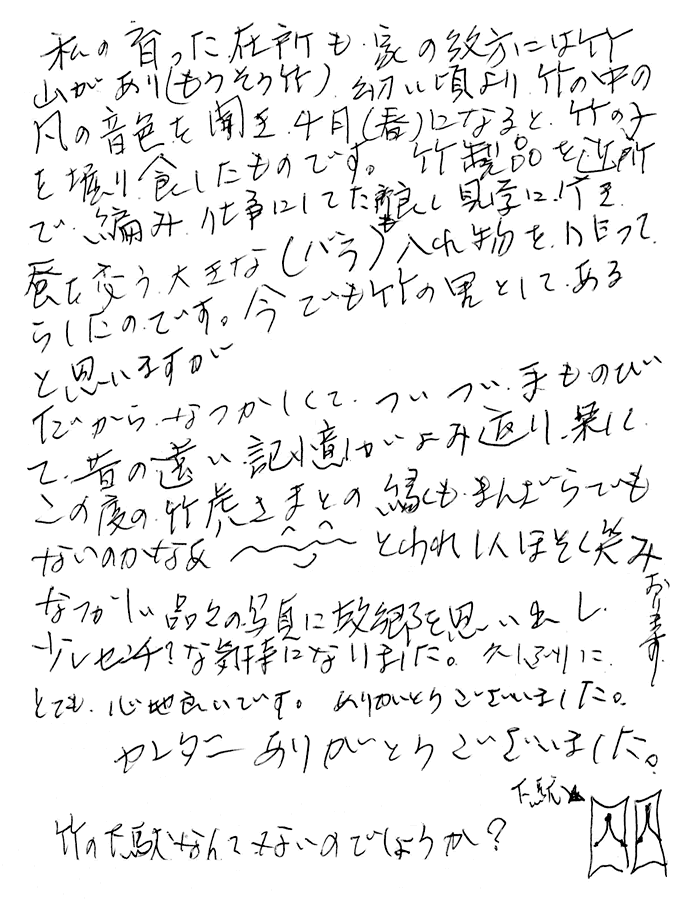 私の育った在所も家の後方には竹
山があり(もうそう竹) 幼い頃より 竹の中の
風の音色を聞き 4月(春)になると 竹の子
を堀り食したものです。 竹製品を近所
で 編み 仕事にしてた も 見学に行き
蚕を 大きな(バラ)入れ物を 作って
らしたのです。今でも竹の里として ある
と思いますが
だから なつかしくて ついつい 手ものび
て 昔の遠い記憶がよみ返り
この度の竹虎さまとの 縁も まんざらでも
ないのかなと 1人ほそく笑み
おります
なつかしい品々の写真に故郷を思い出し
少しセンチ?な気持になりました。 久しぶりに
とても 心地良いです。 ありがとうございました。
ありがとうございました。
下駄
竹の下駄なんて ないのでしょうか?